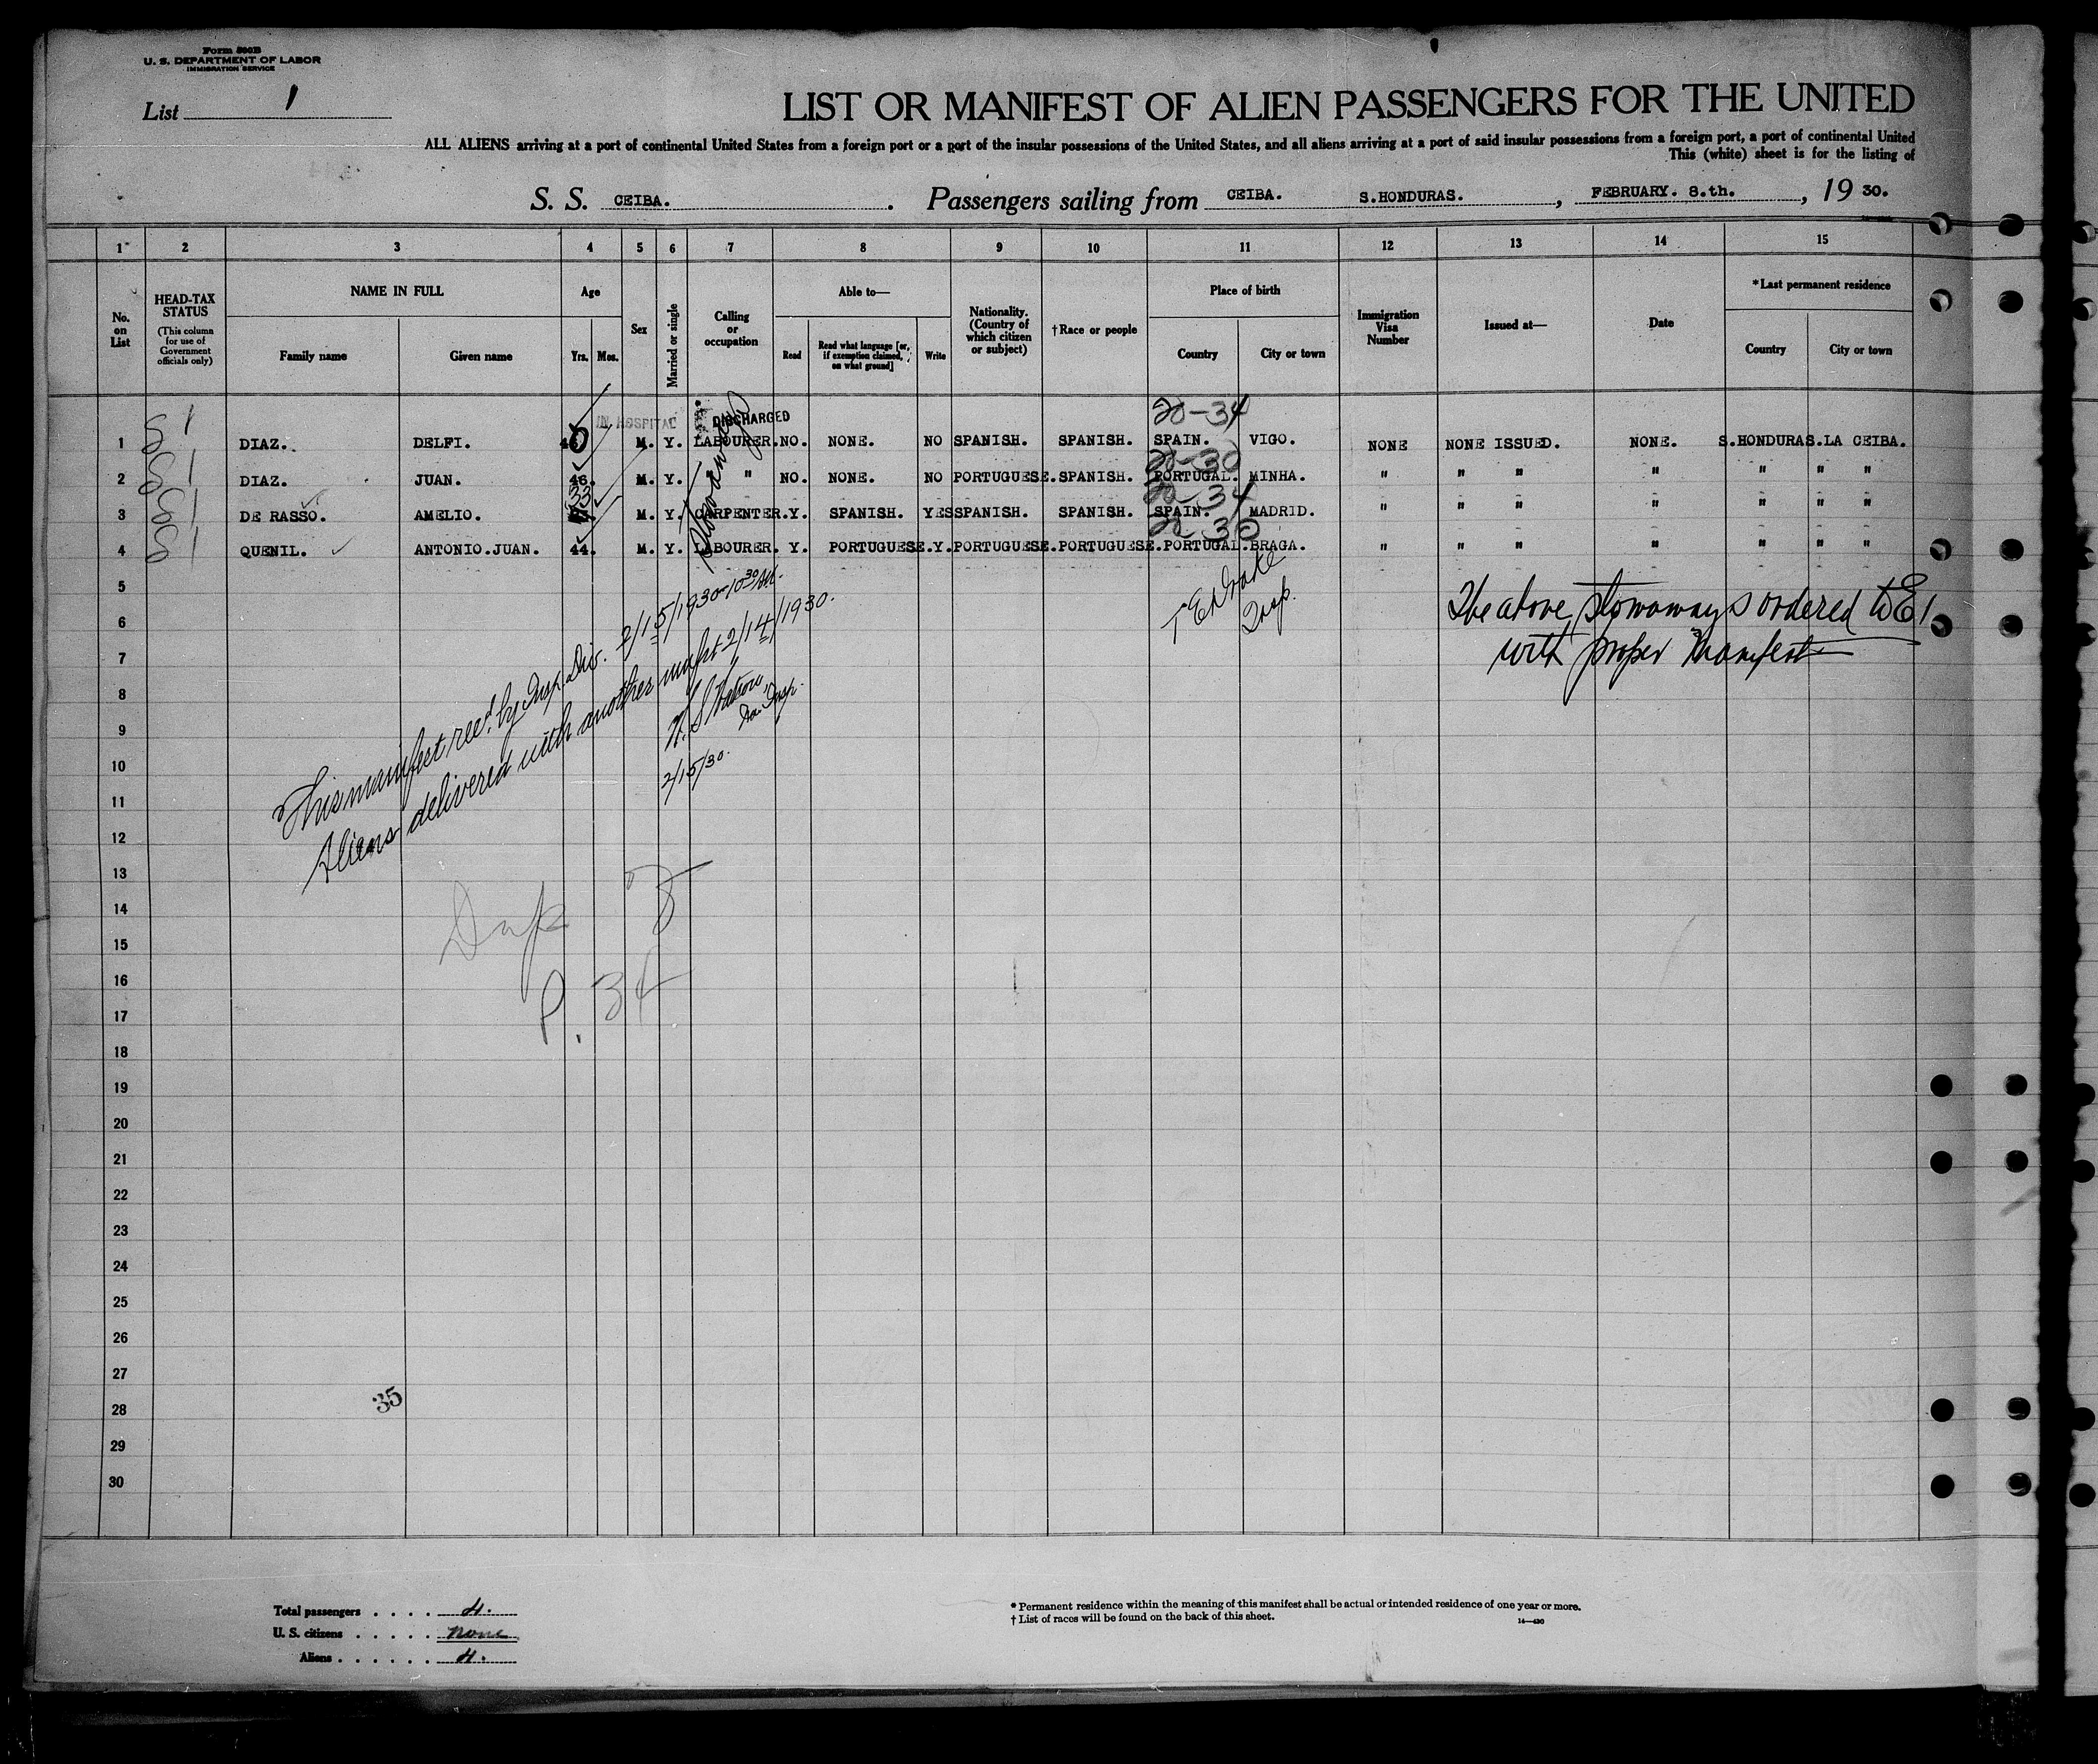 Form 500B
U. S. DEPARTMENT OF LABOR
IMMIGRATION SERVICE
List 1
LIST OR MANIFEST OF ALIEN PASSENGERS FOR THE UNITED
ALL ALIENS arriving at a port of continental United States from a foreign port or a port of the insular possessions of the United States, and all aliens arriving at a port of said insular possessions from a foreign port, a port of continental United
This (white) sheet is for the listing of
S. S. CEIBA. . Passengers sailing from CEIBA. S.HONDURAS. , FEBRUARY. 8.th. , 19 30.
1 2 3 4 5 6 7 8 9 10 11 12 13 14 15
No. on List
HEAD-TAX STATUS (This column for use of Government officials only)
NAME IN FULL
Family name Given name
Age
Yrs. Mos.
Sex
Married or single
Calling or occupation
Able to—
Read
Read what language [or, if exemption claimed, on what ground]
Write
Nationality. (Country of which citizen or subject)
†Race or people
Place of birth
Country City or town
Immigration Visa Number
Issued at—
Date
*Last permanent residence
Country City or town
IN HOSPITAL DISCHARGED 20-34
1 DIAZ. DELFI. M. Y. LABOURER. NO. NONE. NO SPANISH. SPANISH. SPAIN. VIGO. NONE NONE ISSUED. NONE. S.HONDURAS. LA CEIBA.
20-30
2 DIAZ. JUAN. 46. M. Y. " NO. NONE. NO PORTUGUESE. SPANISH. PORTUGAL. MINHA. " " " " " " "
33 20-34
3 DE RASSO. AMELIO. M. Y. CARPENTER. Y. SPANISH. YES SPANISH. SPANISH. SPAIN. MADRID. " " " " " " "
20-30
4 QUENIL. ANTONIO.JUAN. 44. M. Y. LABOURER. Y. PORTUGUESE. Y. PORTUGUESE. PORTUGUESE. PORTUGAL. BRAGA. " " " " " " "
Stowaways
5
6
7
8
9
10
11
12
13
14
15
16
17
18
19
20
21
22
23
24
25
26
27
28
29
30
Insp.
The above stowaways ordered to EI
with proper manifest
This manifest recd. by Insp. Div. 2/15/1930-10 30 AM.
Aliens delivered with another mnfst 2/14/1930.
Insp.
2/15/30.
P. 34
35
Total passengers . . . . 4.
U. S. citizens . . . . . none
Aliens . . . . . . 4.
* Permanent residence within the meaning of this manifest shall be actual or intended residence of one year or more.
† List of races will be found on the back of this sheet.
14—430